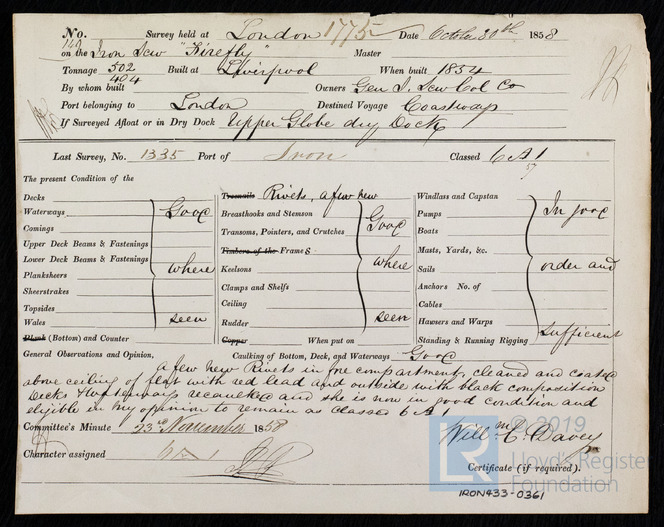 No. Survey held at London 1775 Date October 30th 1858
on the Iron Scw "Firefly" Master
Tonnage 502 Built at Liverpool When built 1854
404
By whom built Owners Gen I. Scw Col Co
Port belonging to London Destined Voyage Coastways
If Surveyed Afloat or in Dry Dock Upper Globe dry Dock
Last Survey, No. 1335 Port of Iron Classed 6 A 1
57
The present Condition of the
Decks
Waterways Good
Comings
Upper Deck Beams & Fastenings
Lower Deck Beams & Fastenings
Planksheers where
Sheerstrakes
Topsides
Wales seen
Plank (Bottom) and Counter
Treenails Rivets, a few new
Breasthooks and Stemson
Transoms, Pointers, and Crutches Good
Timbers of the Frames
Keelsons where
Clamps and Shelfs
Ceiling
Rudder seen
Copper When put on
Windlass and Capstan
Pumps In good
Boats
Masts, Yards, &c.
Sails order and
Anchors No. of
Cables
Hawsers and Warps
Standing & Running Rigging sufficient
General Observations and Opinion, Caulking of Bottom, Deck, and Waterways Good
a few new Rivets in fore compartment, cleaned and coated
above ceiling of flat with red lead and outside with black composition
Decks & Waterways recaulked and she is now in good condition and
eligible in my opinion to remain as classed 6 A 1
Committee's Minute 23rd November 1858
Willm C. Davey
Character assigned 6 A 1
Certificate (if required).
© 2019
LR
Lloyd's Register
Foundation
IRON433-0361